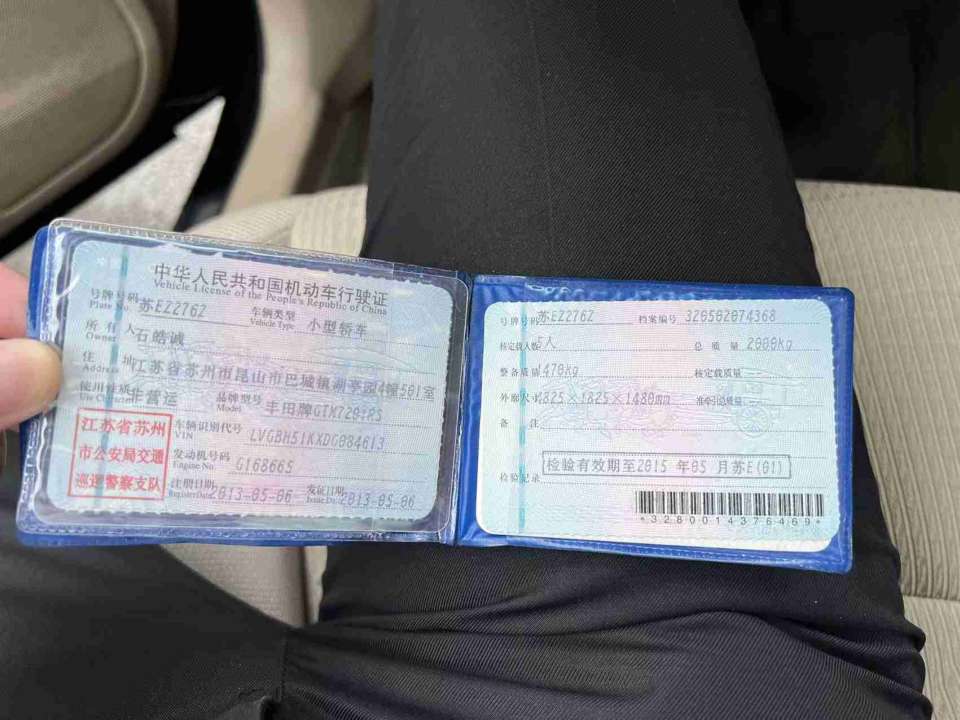 中华人民共和国机动车行驶证
Vehicle License of the People's Republic of China
号牌号码 Plate No. 苏EZ276Z 车辆类型 Vehicle Type 小型轿车
所有人 Owner 石皓诚
住址 Address 江苏省苏州市昆山市巴城镇湖亭园4幢501室
使用性质 Use Character 非营运 品牌型号 Model 丰田牌GTM7201RS
江苏省苏州
市公安局交通
巡逻警察支队
车辆识别代号 VIN LVGBH51KXDG084613
发动机号码 Engine No. G168665
注册日期 Register Date 2013-05-06 发证日期 Issue Date 2013-05-06
号牌号码 苏EZ276Z 档案编号 320502074368
核定载人数 5人 总质量 2000kg
整备质量 470kg 核定载质量 --
外廓尺寸 825×1825×1480mm 准牵引总质量 --
备注
检验记录 检验有效期至2015年05月苏E(01)
*3280014376469*